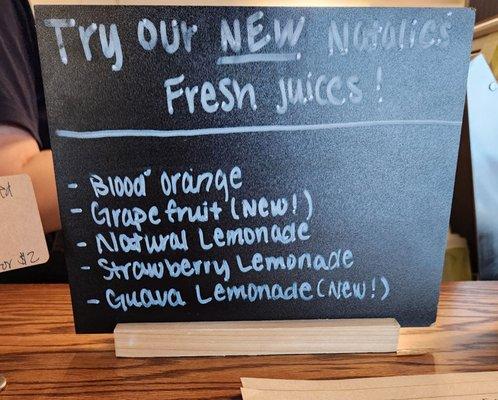 Try our NEW Natalie's
Fresh juices!
- Blood orange
- Grapefruit (New!)
- Natural Lemonade
- Strawberry Lemonade
- Guava Lemonade (New!)
or $2